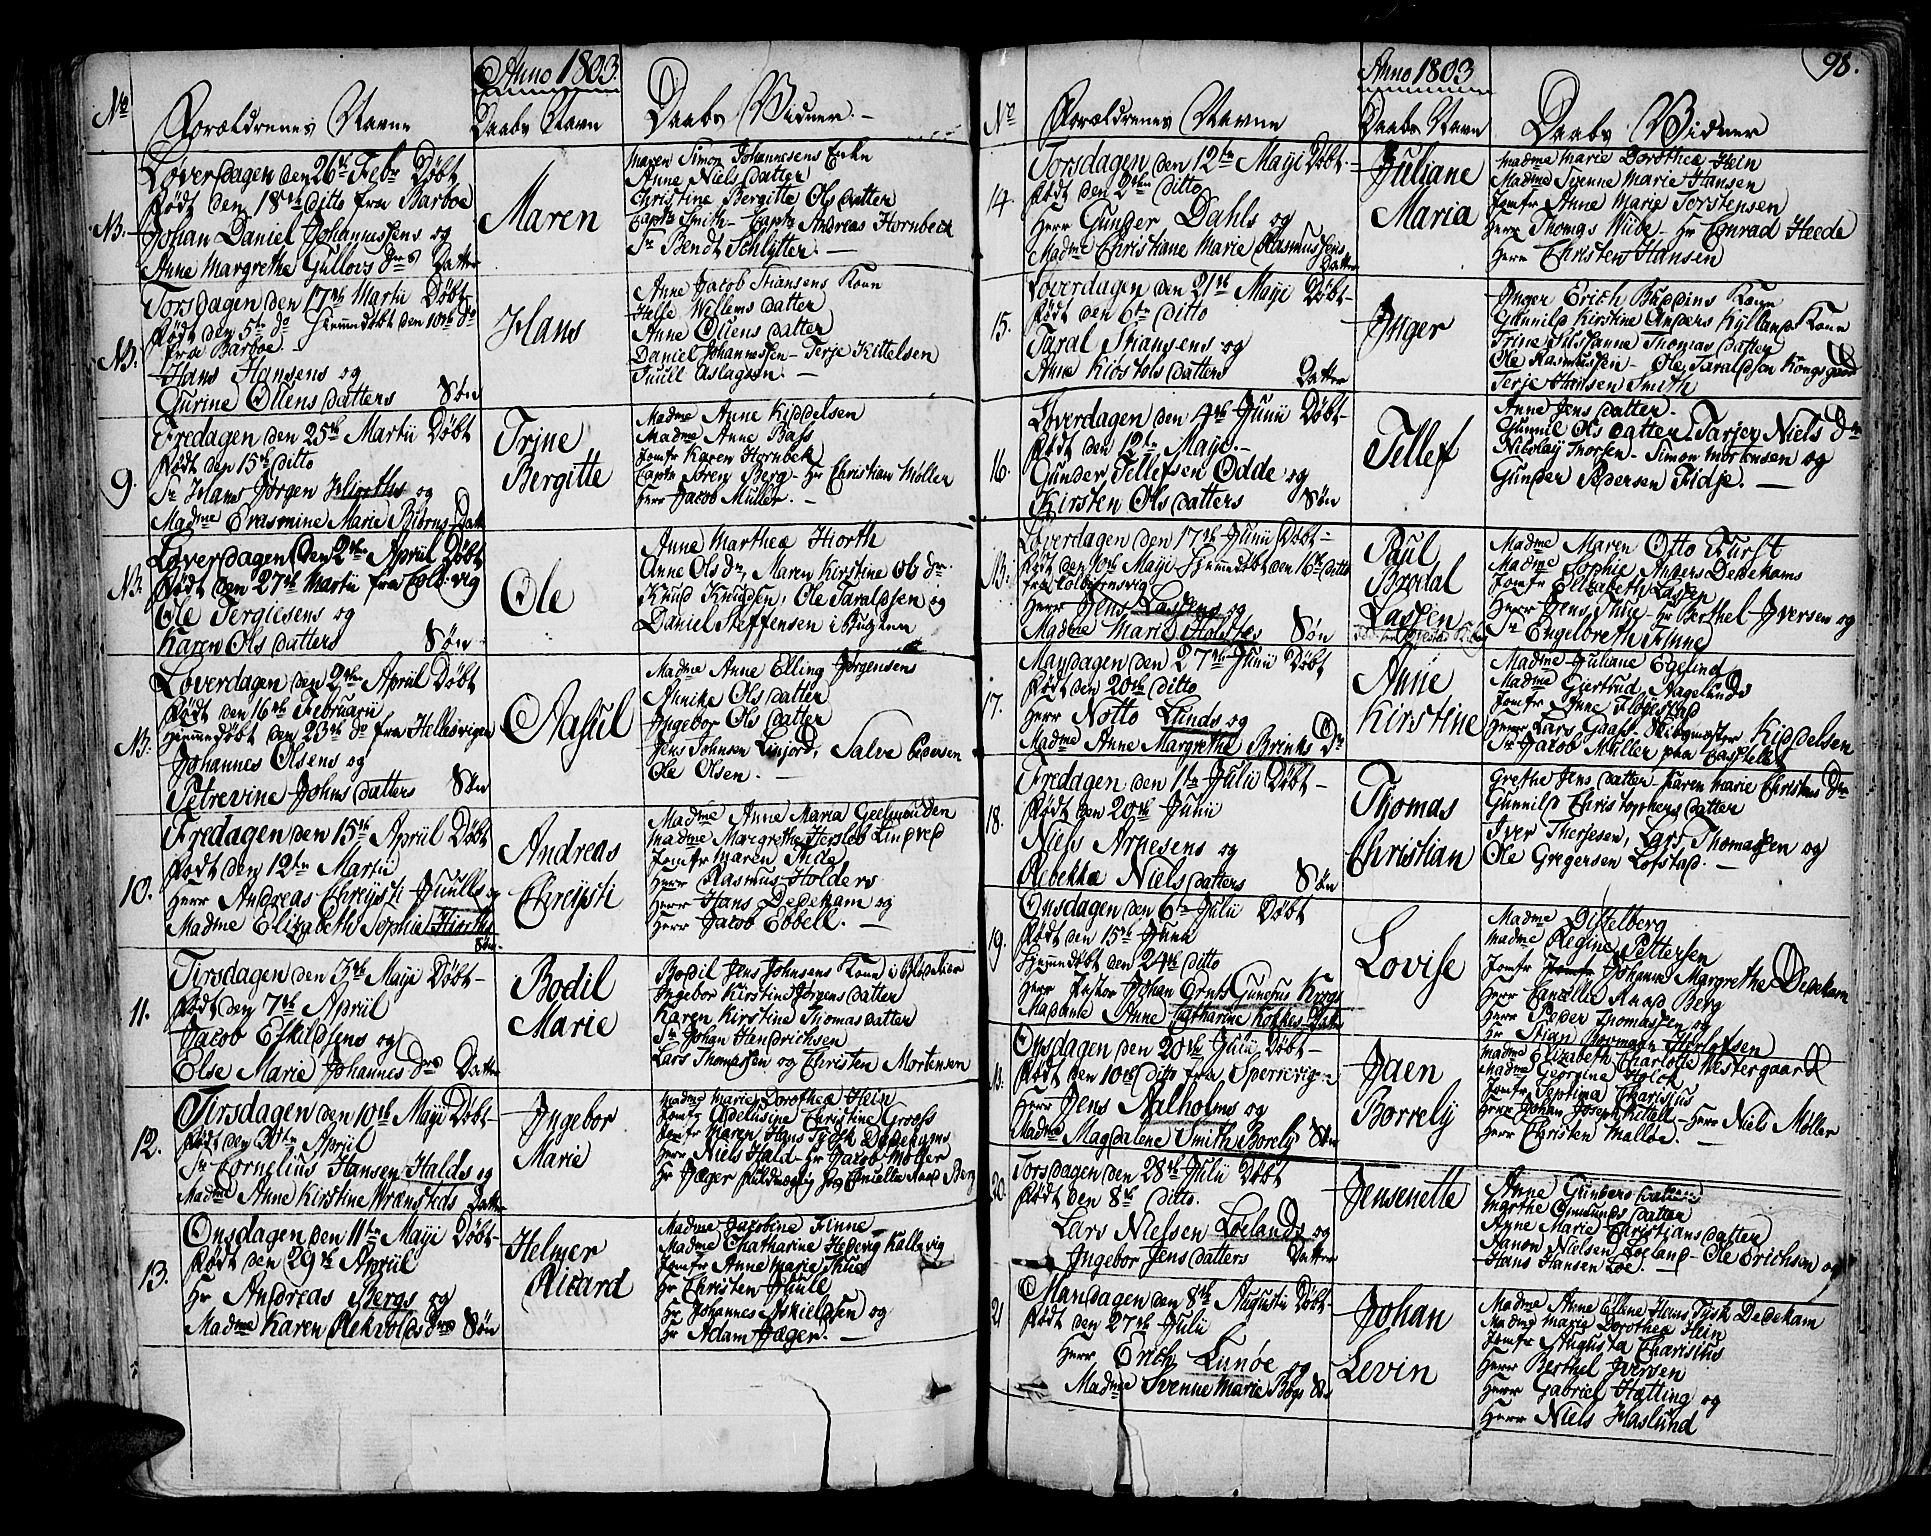 Anno 1803.
No
Forældrenes Navne
Daabs Navn
Daabs Vidner.
Løverdagen den 26de Febr Døbt
Født den 18de ditto fra Barboe
NB.
Johan Daniel Johannessens og
Anne Margrethe Gullovs drs Datter
Maren
Maren Simon Johannesens Enke
Anne Niels datter
Christine Bergitte Ols datter
Captn Smith - Captn Andreas Hornbeck
Sr Bendt Schlytter. -
Torsdagen den 17de Martii Døbt
Født den 5te do Hiemmedøbt den 10de do
fra Barboe.
NB.
Hans Hansens og
Gurine Ollens datters Søn
Hans
Anne Jacob Stiansens Kone
Helje Willems datter
Anne Ollens datter
Daniel Johannessen - Terje Kittelsen
Juull Aslagsen. -
Fredagen den 25de Martii Døbt
Født den 15de ditto
9.
Sr Hans Jørgen Hiorths og
Madme Erasmine Marie Biørns Datt
Trine
Bergitte
Madme Anne Kiddelsen
Madme Anne Bass
Jomfr Karen Hornbek
Captn Søren Berg - Hr Christian Møller
Herr Jacob Müller. -
Løverdagen den 2den April Døbt
Født den 27de Martii fra Colb.vig
NB.
Ole Tergiesens og
Karen Ols datters Søn
Ole
Anne Marthea Hiorth
Anne Ols dr, Maren Kirstine Ols dr
Knud Knudsen, Ole Taraldsen og
Daniel Steffensen i Bugten
Løverdagen den 2den April Døbt
Født den 16de Februarii
Hiemmedøbt den 23de do fra Helliesvigen
NB.
Johannes Olsens og
Petrevine Johns datters Søn
Aasul
Madme Anne Elling Jørgensens
Annike Ols datter
Ingebor Ols datter
Jens Johnsen Linjord, Salve Pedersen
Ole Olsen. -
Fredagen den 15de April Døbt
Født den 12te Martii
10.
Herr Andreas Chreysti Juulls og
Madme Elizabeth Sophie Hiorths
Søn
Andreas
Chreysti
Madme Anne Maria Geelmuiden
Madme Margrethe Herslev Lindved
Jomfr Maren Thide
Herr Rasmus Holders
Herr Hans Dedekam og
Herr Jacob Ebbell. -
Tirsdagen den 3de Maji Døbt
Født den 7de April
11.
Jacob Eskildsens og
Else Marie Johannes drs Datter
Bodil
Marie
Bodil Jens Johnsens Kone i Blødekier
Ingebor Kirstine Jørgens datter
Karen Kirstine Thomas datter
Sr Johan Hendrichsen
Lars Thomassen og Christen Mortensen
Tirsdagen den 10de Maji Døbt
Født den 30te April
12.
Sr Cornelius Hansen Halds og
Madme Anne Kirstine Wrænsteds Datter
Ingebor
Marie
Madme Marie Dorothea Hein
Jomfr Edelusine Christine Grooss
Jomfr Karen Hans Tydsk Dedekams
Herr Niels Hald - Hr Jacob Møller
Hr Jæger Fuldmægtig hos Cancellie Raad Berg
Onsdagen den 11te Maji Døbt
Født den 29de April
13.
Hr Andreas Bergs og
Madme Karen Rekvolds drs Søn
Helmer
Ricard
Madme Jacobine Finne
Madme Chatharine Hedevig Kallevig
Jomfr Anne Marie Thue
Hr Christen Juull
Hr Johannes Askieldsen og
Hr Adam Jæger. -
98.
Anno 1803
No
Forældrenes Navne
Daabs Navn
Daabs Vidner
Torsdagen den 12te Maji Døbt
Født den 2den ditto
14.
Herr Gunder Dahls og
Madme Christiane Marie Rasmussens
Datter
Juliane
Maria
Madme Marie Dorothea Hein
Madme Svenne Marie Hansen
Jomfr Anne Marie Torstensen
Herr Thomas Wibe - Hr Conrad Heede
Herr Christen Hansen
Løverdagen den 21de Maji Døbt
Født den 6te ditto
15.
Taral Stiansens og
Anne Kirstols datters Datter
Inger
Inger Erich Buddins Kone
Gunnild Kirstine Anders Kylland Kone
Trine Susanne Thomas datter
Ole Rasmussen - Ole Taraldsen Kongsgaard
Terje Hansen Smith
Løverdagen den 4de Junii Døbt
Født den 12te Maji
16.
Gunder Tellefsen Odde og
Kirsten Ols datters Søn
Tellef
Anne Jens datter.
Gunnil Ols datter - Tarjer Niels dr
Nicolay Thorsen - Simon Mortensen og
Gunder Pedersen Fidje. -
Løverdagen den 17de Junii Døbt
Født den 10de Maji Hiemmedøbt den 16de ditto
fra Colbiørnsvig
NB.
Herr Jens Lassens og
Madme Marie Holstes Søn
Paul
Brodal
Lassen
Madme Maren Otto Furst
Madme Sophie Anders Dedekams
Jomfr Elizabeth Lassen
Herr Jens Thue - Hr Berthel Iversen og
Sr Engelbreth Finne
Mandagen den 27de Junii Døbt
Født den 20de ditto
17.
Herr Notto Lunds og
Madme Anne Margrethe Brinks Dr
Anne
Kirstine
Madme Juliane Egelund
Madme Giertrud Aagelunds
Jomfr Anne Flogestad
Herr Lars Gaas - Skibsmester Kiddelsen
Sr Jacob Müller paa Castellet
Fredagen den 1te Julii Døbt
Født den 20de Junii
18.
Niels Arnesens og
Rebekka Niels datters Søn
Thomas
Christian
Grethe Jens datter - Karen Marie Christens dr
Gunnild Christophers datter
Iver Therjesen, Lars Thomassen og
Ole Gregersen Lofstad. -
Onsdagen den 6te Julii Døbt
Født den 15de Junii
Hiemmedøbt den 24de ditto
19.
Herr Pastor Johan Ernst Gunerus Krogs
Madame Anne Catharine Kofkes Datter
Lovise
Madme Distelberg
Madme Regine Pettersen
Jomfr Johanne Margrethe Dedekam
Herr Cancellie Raad Berg
Herr Peder Thomassen og
Hr Stian Normann Herlofsen
Onsdagen den 20de Julii Døbt
Født den 10de ditto fra Sperrevig
NB.
Herr Jens Aalholms og
Madme Magdalene Smith Borely Søn
Jaen
Borrely
Madme Elizabeth Charlotte Westergaard
Madme Georgine Holck
Jomfr Septima Charisius
Herr Johan Joseph Kittell - Herr Niels Møller
Herr Christen Malløe. -
Torsdagen den 28de Julii Døbt
Født den 8de ditto.
20.
Lars Nielsen Loelands og
Ingebor Jens datters Datter
Jensenette
Anne Gunders datter
Marthe Edmunds datter
Anne Marie Christians datter
Hanon Nielsen Loeland - Ole Erichsen og
Hans Hansen Loe. -
Mandagen den 8de Augustii Døbt
Født den 27de Julii
21
Herr Erich Lunøe og
Madme Svenne Marie Boys Søn
Johan
Levin
Madme Anne Elene Hans Tydsk Dedekam
Madme Marie Dorothea Hein
Jomfr Augusta Charisius
Herr Berthel Iversen
Herr Gabriel Hætting og
Herr Niels Haslund